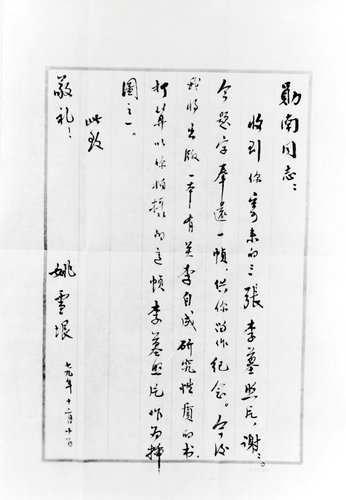 勋南同志：
收到你寄来的三张李墓照片，谢谢。
今题字奉还一帧，供你留作纪念。今后
我将出版一本有关李自成研究性质的书，
打算以你拍摄的这帧李墓照片作为插
图之一。
此致
敬礼！
姚雪垠
七九年十二月十日